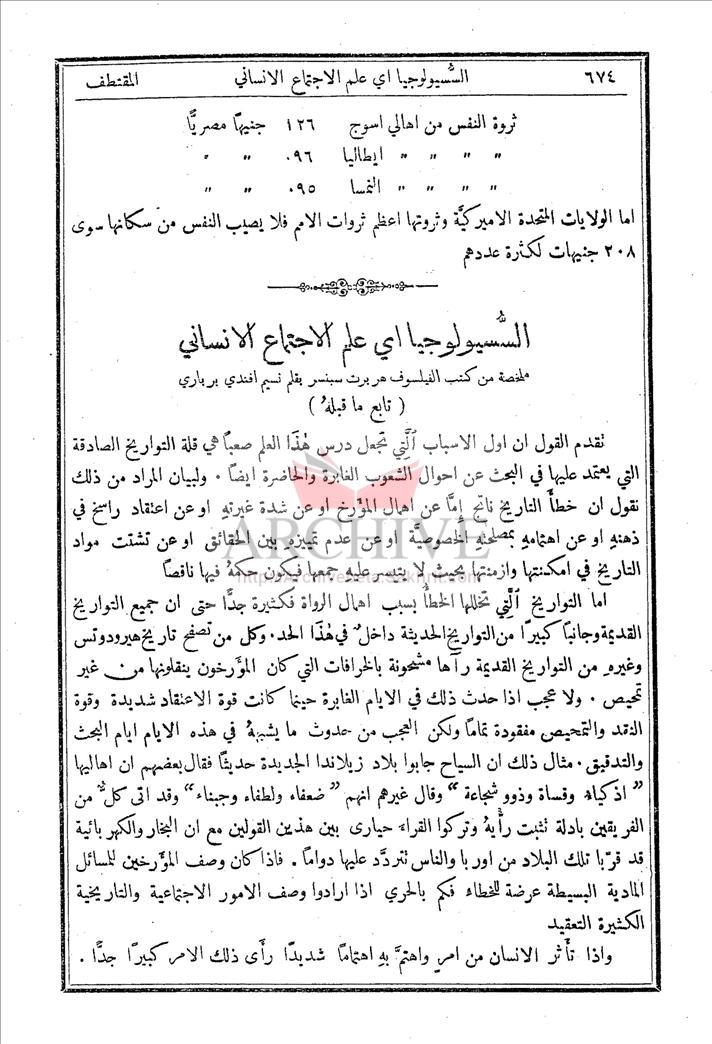 ٦٧٤ السُّسيولوجيا اي علم الاجتماع الانساني المقتطف
ثروة النفس من اهالي اسوج ١٢٦ جنيهًا مصريًّا
" " " " ايطاليا ٠٩٦ " "
" " " " النمسا ٠٩٥ " "
اما الولايات المتحدة الاميركيَّة وثروتها اعظم ثروات الامم فلا يصيب النفس من سكانها سوى
٢٠٨ جنيهات لكثرة عددهم
السُّسيولوجيا اي علم الاجتماع الانساني
ملخصة من كتب الفيلسوف هربرت سبنسر بقلم نسيم افندي برباري
( تابع ما قبلهُ )
تقدم القول ان اول الاسباب الَّتي تجعل درس هٰذا العلم صعبًا هي قلة التواريخ الصادقة
التي يعتمد عليها في البحث عن احوال الشعوب الغابرة والحاضرة ايضًا . ولبيان المراد من ذلك
نقول ان خطأَ التاريخ ناتج إِمَّا عن اهمال المؤَرخ او عن شدة غيرتهِ او عن اعتقاد راسخ في
ذهنهِ او عن اهتمامهِ بمصلحتهِ الخصوصيَّة او عن عدم تمييزهِ بين الحقائق او عن تشتت مواد
التاريخ في امكنتها وازمنتها بحيث لا يتيسر عليهِ جمعها فيكون حكمهُ فيها ناقصًا
اما التواريخ الَّتي تخللها الخطأُ بسبب اهمال الرواة فكثيرة جدًّا حتى ان جميع التواريخ
القديمة وجانبًا كبيرًا من التواريخ الحديثة داخلٌ في هٰذا الحد. وكل من تصفح تاريخ هيرودوتس
وغيرهِ من التواريخ القديمة رآها مشحونة بالخرافات التي كان المؤَرخون ينقلونها من غير
تمحيص . ولا عجب اذا حدث ذلك في الايام الغابرة حينما كانت قوة الاعتقاد شديدة وقوة
النقد والتمحيص مفقودة تمامًا ولكن العجب من حدوث ما يشبههُ في هذه الايام ايام البحث
والتدقيق. مثال ذلك ان السياح جابوا بلاد زيلاندا الجديدة حديثًا فقال بعضهم ان اهاليها
" اذكياء وقساة وذوو شجاعة " وقال غيرهم انهم " ضعفاء ولطفاء وجبناء " وقد اتى كلٌّ من
الفريقين بادلة تثبت رأْيهُ وتركوا القراء حيارى بين هذين القولين مع ان البخار والكهربائية
قد قرَّبا تلك البلاد من اوربا والناس تتردَّد عليها دوامًا . فاذا كان وصف المؤَرخين للمسائل
المادية البسيطة عرضة للخطاء فكم بالحري اذا ارادوا وصف الامور الاجتماعية والتاريخية
الكثيرة التعقيد
واذا تأَثر الانسان من امرٍ واهتمَّ بهِ اهتمامًا شديدًا رأَى ذلك الامر كبيرًا جدًّا .
ARCHIVE